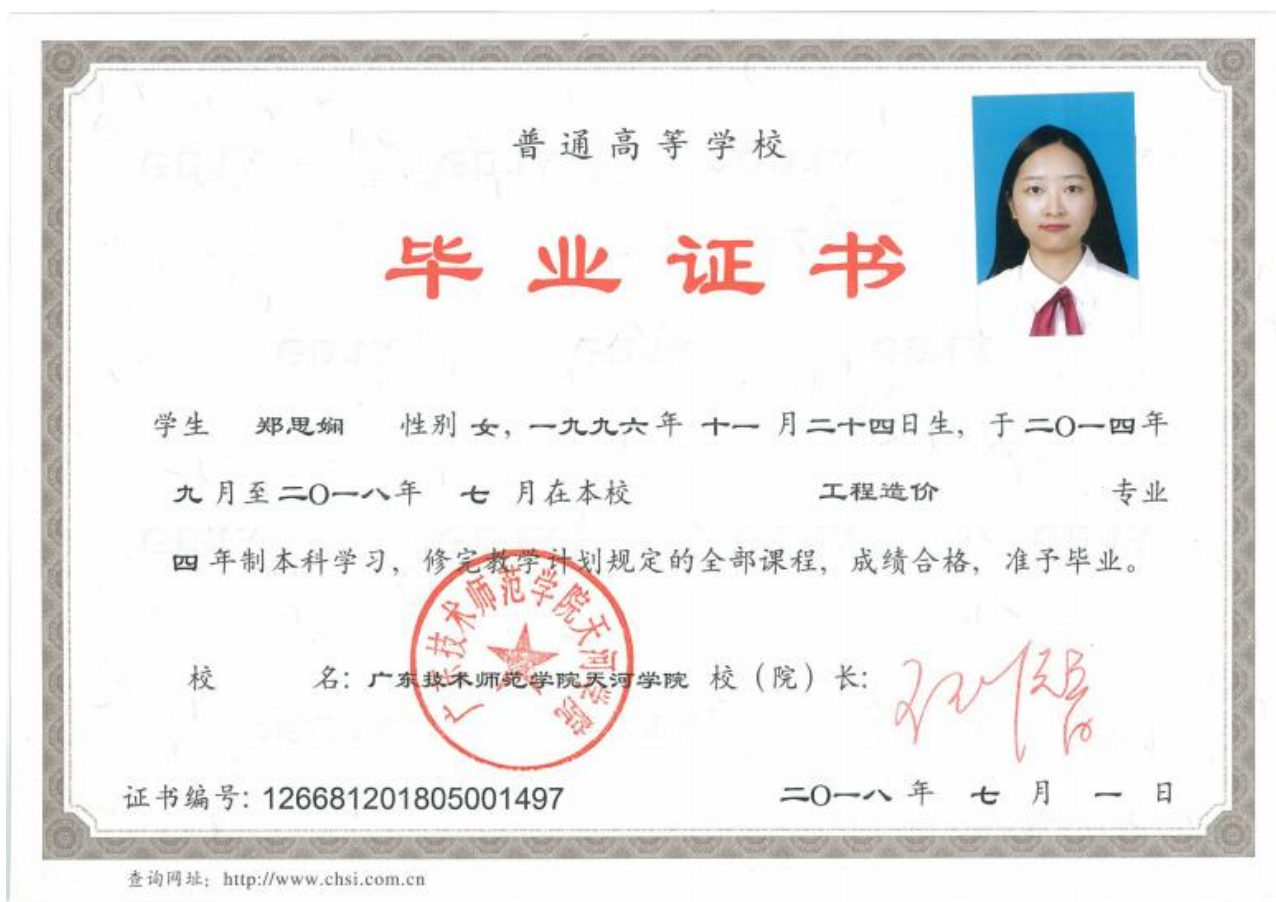 普通高等学校
毕业证书
学生 郑思娴 性别 女，一九九六年 十一 月二十四日生，于二O一四年
九月至二O一八年 七 月在本校 工程造价 专业
四 年制本科学习，修完教学计划规定的全部课程，成绩合格，准予毕业。
广东技术师范学院天河学院
校 名：广东技术师范学院天河学院 校（院）长：
证书编号：126681201805001497 二O一八 年 七 月 一 日
查询网址：http://www.chsi.com.cn